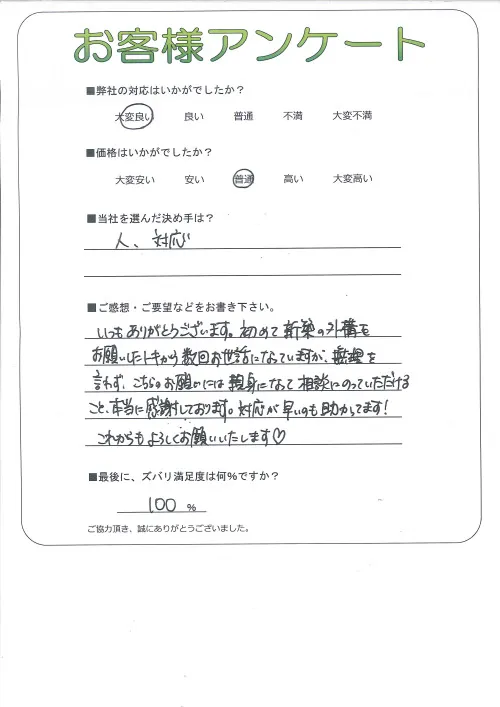 お客様アンケート
■弊社の対応はいかがでしたか？
大変良い 良い 普通 不満 大変不満
■価格はいかがでしたか？
大変安い 安い 普通 高い 大変高い
■当社を選んだ決め手は？
人、対応
■ご感想・ご要望などをお書き下さい。
いつもありがとうございます。初めて新築の外構を
お願いしたトキから数回お世話になっていますが、無理を
言わず、こちらのお願いには親身になって相談にのっていただける
こと、本当に感謝しております。対応が早いのも助かってます！
これからもよろしくお願いいたします♡
■最後に、ズバリ満足度は何％ですか？
100 %
ご協力頂き、誠にありがとうございました。